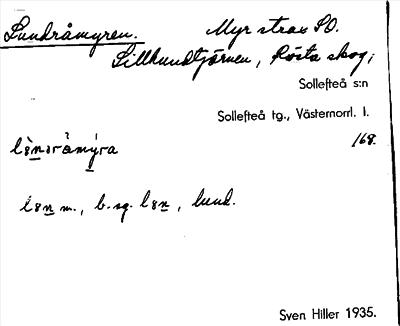 Lundråmyren. Myr strax SO.
Lillkundtjärnen, Rösta skog;
Sollefteå s:n
Sollefteå tg., Västernorrl. l.
168.
m., b. sg. , lund.
Sven Hiller 1935.